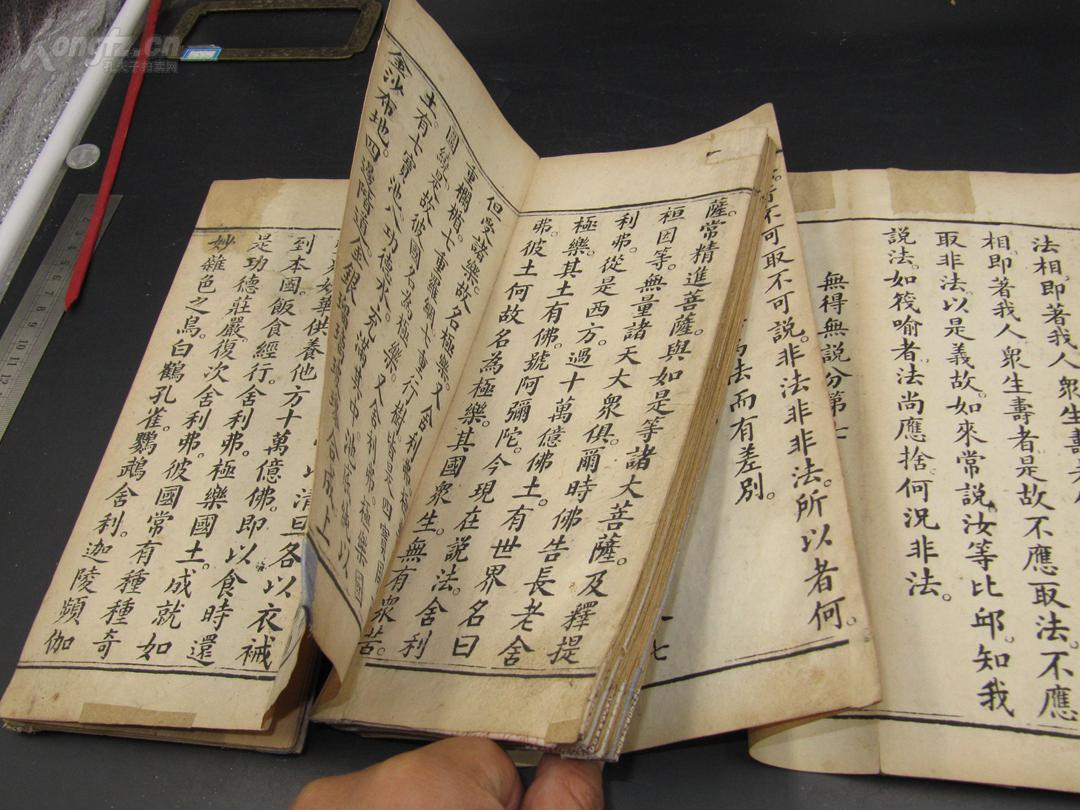 Kongfz.cn
孔夫子拍卖网
法相。即著我人衆生壽者
相。即著我人衆生壽者是故不應取法。不應
取非法。以是義故。如來常説汝等比邱。知我
説法。如筏喻者。法尚應捨。何況非法。
無得無説分第七
不可取不可説。非法非非法。所以者何。
為法而有差別。
十七
薩。常精進菩薩。與如是等諸大菩薩。及釋提
桓因等。無量諸天大衆俱。爾時佛告長老舍
利弗。從是西方。過十萬億佛土。有世界名曰
極樂。其土有佛。號阿彌陀。今現在説法。舍利
弗。彼土何故名為極樂。其國衆生無有衆苦。
但受諸樂。故名極樂。又舍利弗。極樂國
土。七重欄楯。七重羅網。七重行樹。皆是四寶周
圍繞。是故彼國名為極樂。又舍利弗。極樂國
土。有七寶池。八功德水。充滿其中。池底純以
金沙布地。四邊階道。金銀
妙華供養他方十萬億佛。即以食時。還
清旦各以衣祴
到本國。飯食經行。舍利弗。極樂國土。成就如
是功德莊嚴。復次舍利弗。彼國常有種種奇
妙雜色之鳥。白鶴孔雀。鸚鵡舍利。迦陵頻伽